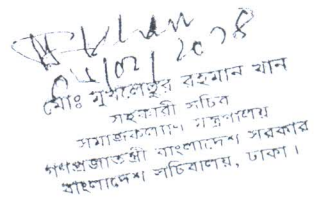 ০২/২০১৪
মোঃ মুখলেছুর রহমান খান
সহকারী সচিব
সমাজকল্যাণ মন্ত্রণালয়
গণপ্রজাতন্ত্রী বাংলাদেশ সরকার
বাংলাদেশ সচিবালয়, ঢাকা।